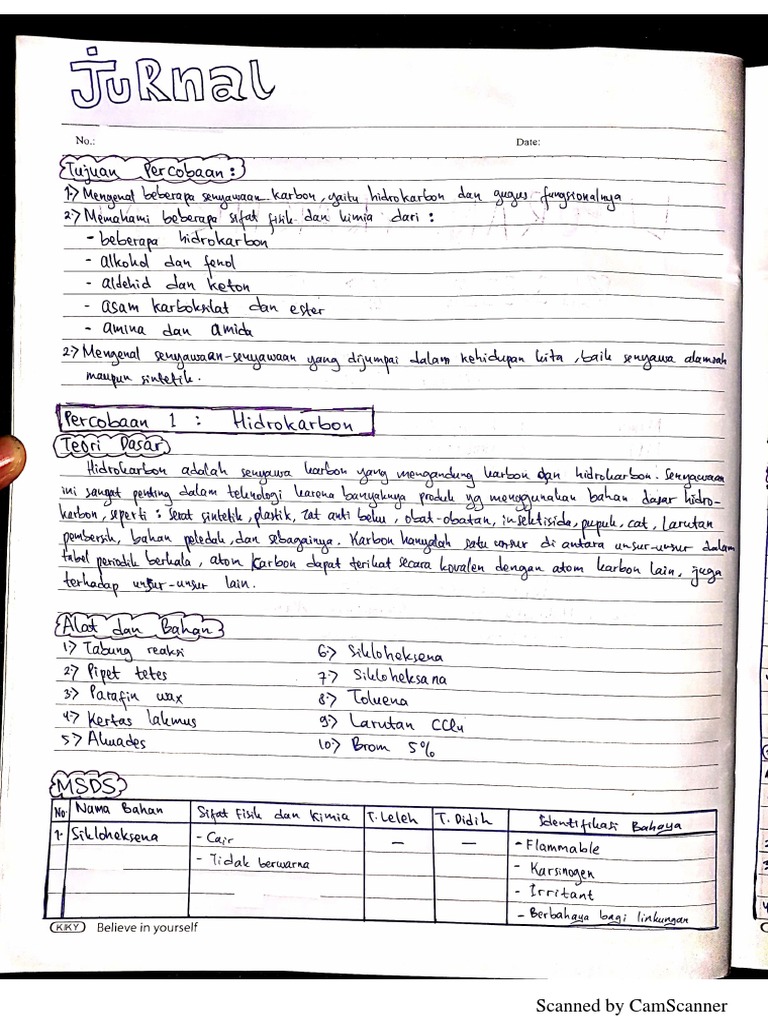 Jurnal
No.:
Date:
Tujuan Percobaan :
1.) Mengenal beberapa senyawaan karbon, yaitu hidrokarbon dan gugus fungsionalnya
2.) Memahami beberapa sifat fisik dan kimia dari :
- beberapa hidrokarbon
- alkohol dan fenol
- aldehid dan keton
- asam karboksilat dan ester
- amina dan amida
2.) Mengenal senyawaan-senyawaan yang dijumpai dalam kehidupan kita, baik senyawa alamiah
maupun sintetik.
Percobaan 1 : Hidrokarbon
Teori Dasar
Hidrokarbon adalah senyawa karbon yang mengandung karbon dan hidrokarbon. Senyawaan
ini sangat penting dalam teknologi karena banyaknya produk yg menggunakan bahan dasar hidro-
karbon, seperti : serat sintetik, plastik, zat anti beku, obat-obatan, insektisida, pupuk, cat, larutan
pembersih, bahan peledak, dan sebagainya. Karbon hanyalah satu unsur di antara unsur-unsur dalam
tabel periodik berkala, atom karbon dapat terikat secara kovalen dengan atom karbon lain, juga
terhadap unsur-unsur lain.
Alat dan Bahan
1.) Tabung reaksi
2.) Pipet tetes
3.) Parafin wax
4.) Kertas lakmus
5.) Akuades
6.) Sikloheksena
7.) Sikloheksana
8.) Toluena
9.) Larutan CCl4
10.) Brom 5%
MSDS
No. Nama Bahan Sifat Fisik dan Kimia T. Leleh T. Didih Identifikasi Bahaya
1. Sikloheksena - Cair — — - Flammable
- Tidak berwarna - Karsinogen
- Irritant
- Berbahaya bagi lingkungan
KKY Believe in yourself
Scanned by CamScanner